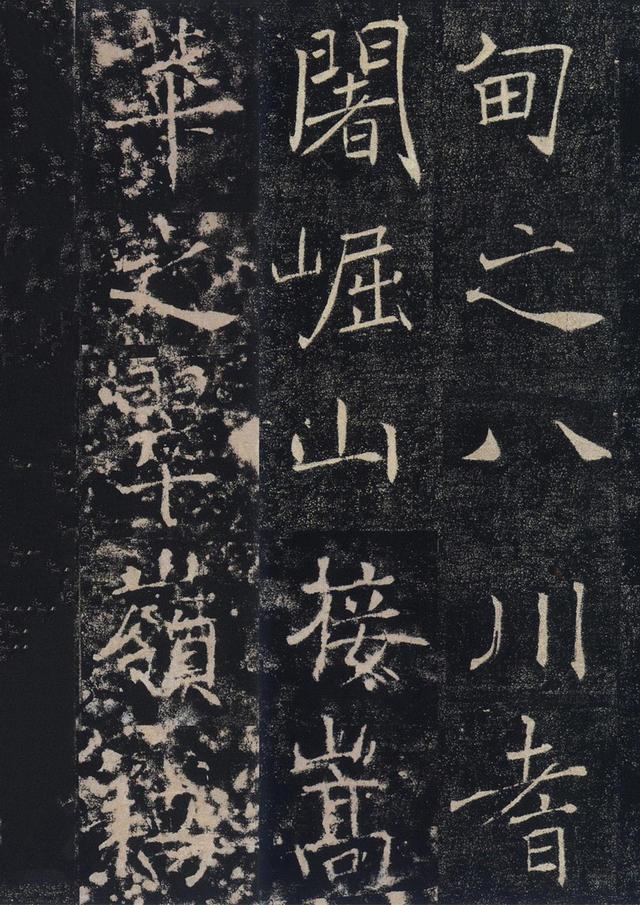 甸之八川耆
闍崛山接嵩
華之翠嶺